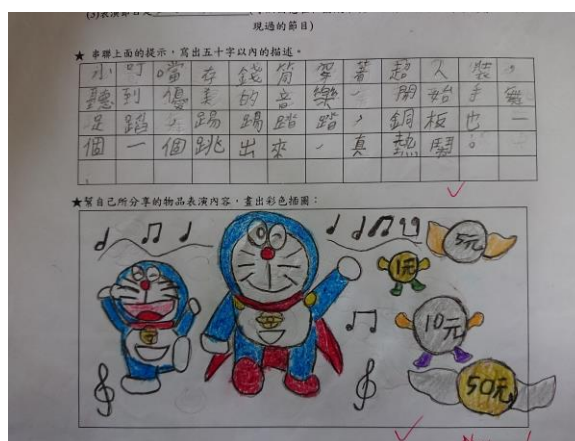 (3)表演節目是
現過的節目)
★ 串聯上面的提示,寫出五十字以內的描述。
小叮噹存錢筒穿著超人裝,
聽到優美的音樂,開始手舞
足蹈,踢踢踏踏,銅板也一
個一個跳出來,真熱鬧。
★幫自己所分享的物品表演內容,畫出彩色插圖:
5元
1元
10元
50元